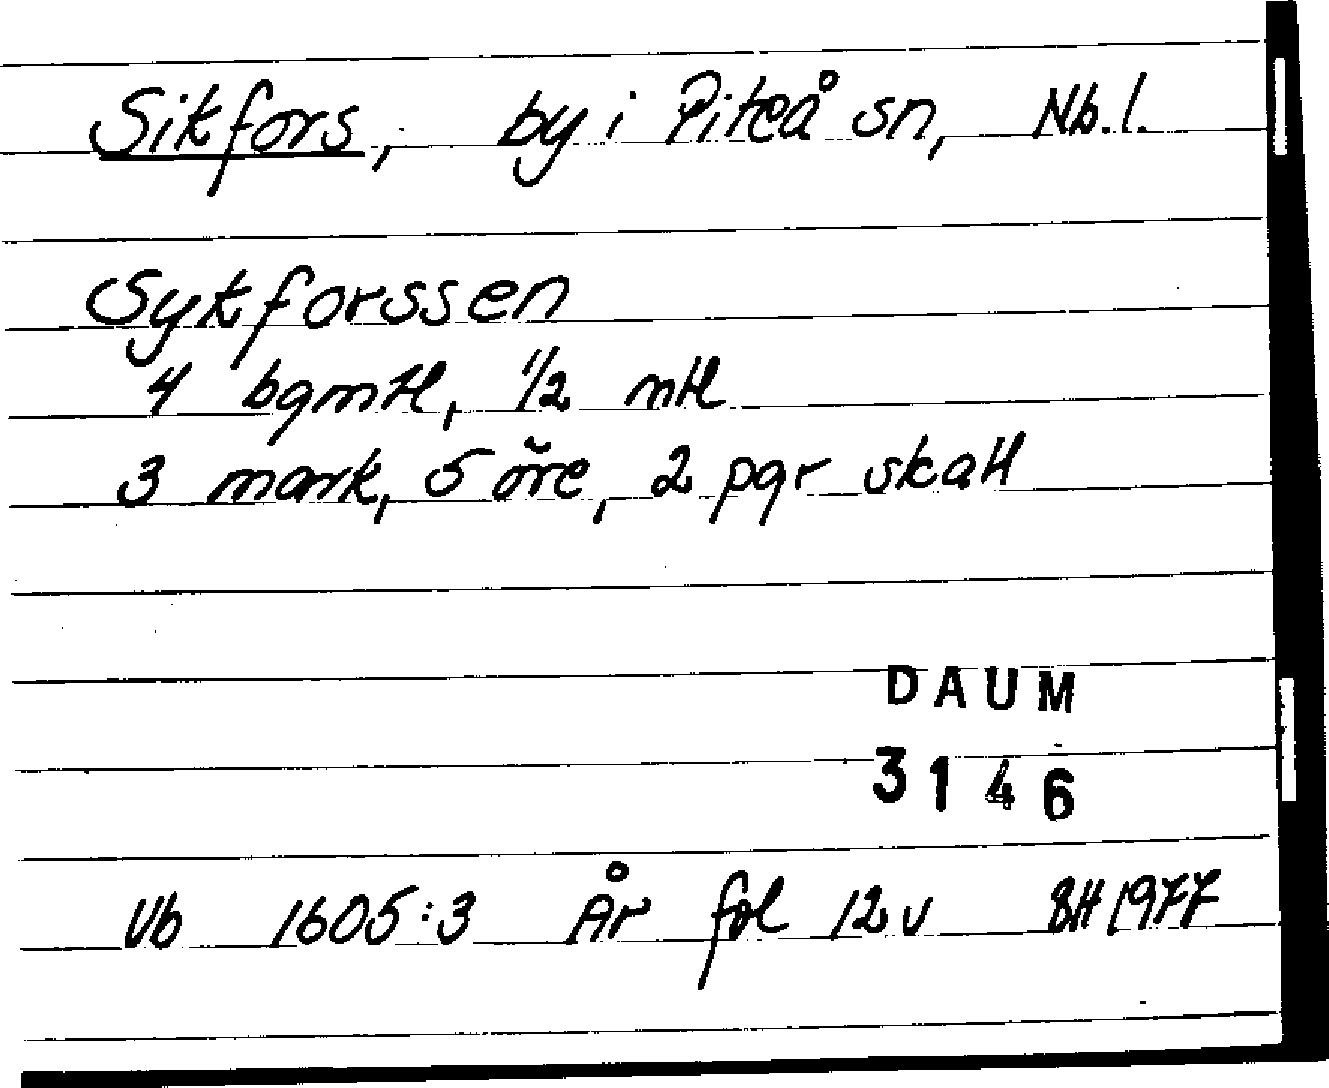 Sikfors, by i Piteå sn, Nb.l.
Sykforssen
4 bgmtl, 1/2 mtl
3 mark, 5 öre, 2 pgr skatt
DAUM
3146
Vb 1605:3 År fol 12 v BH 1977